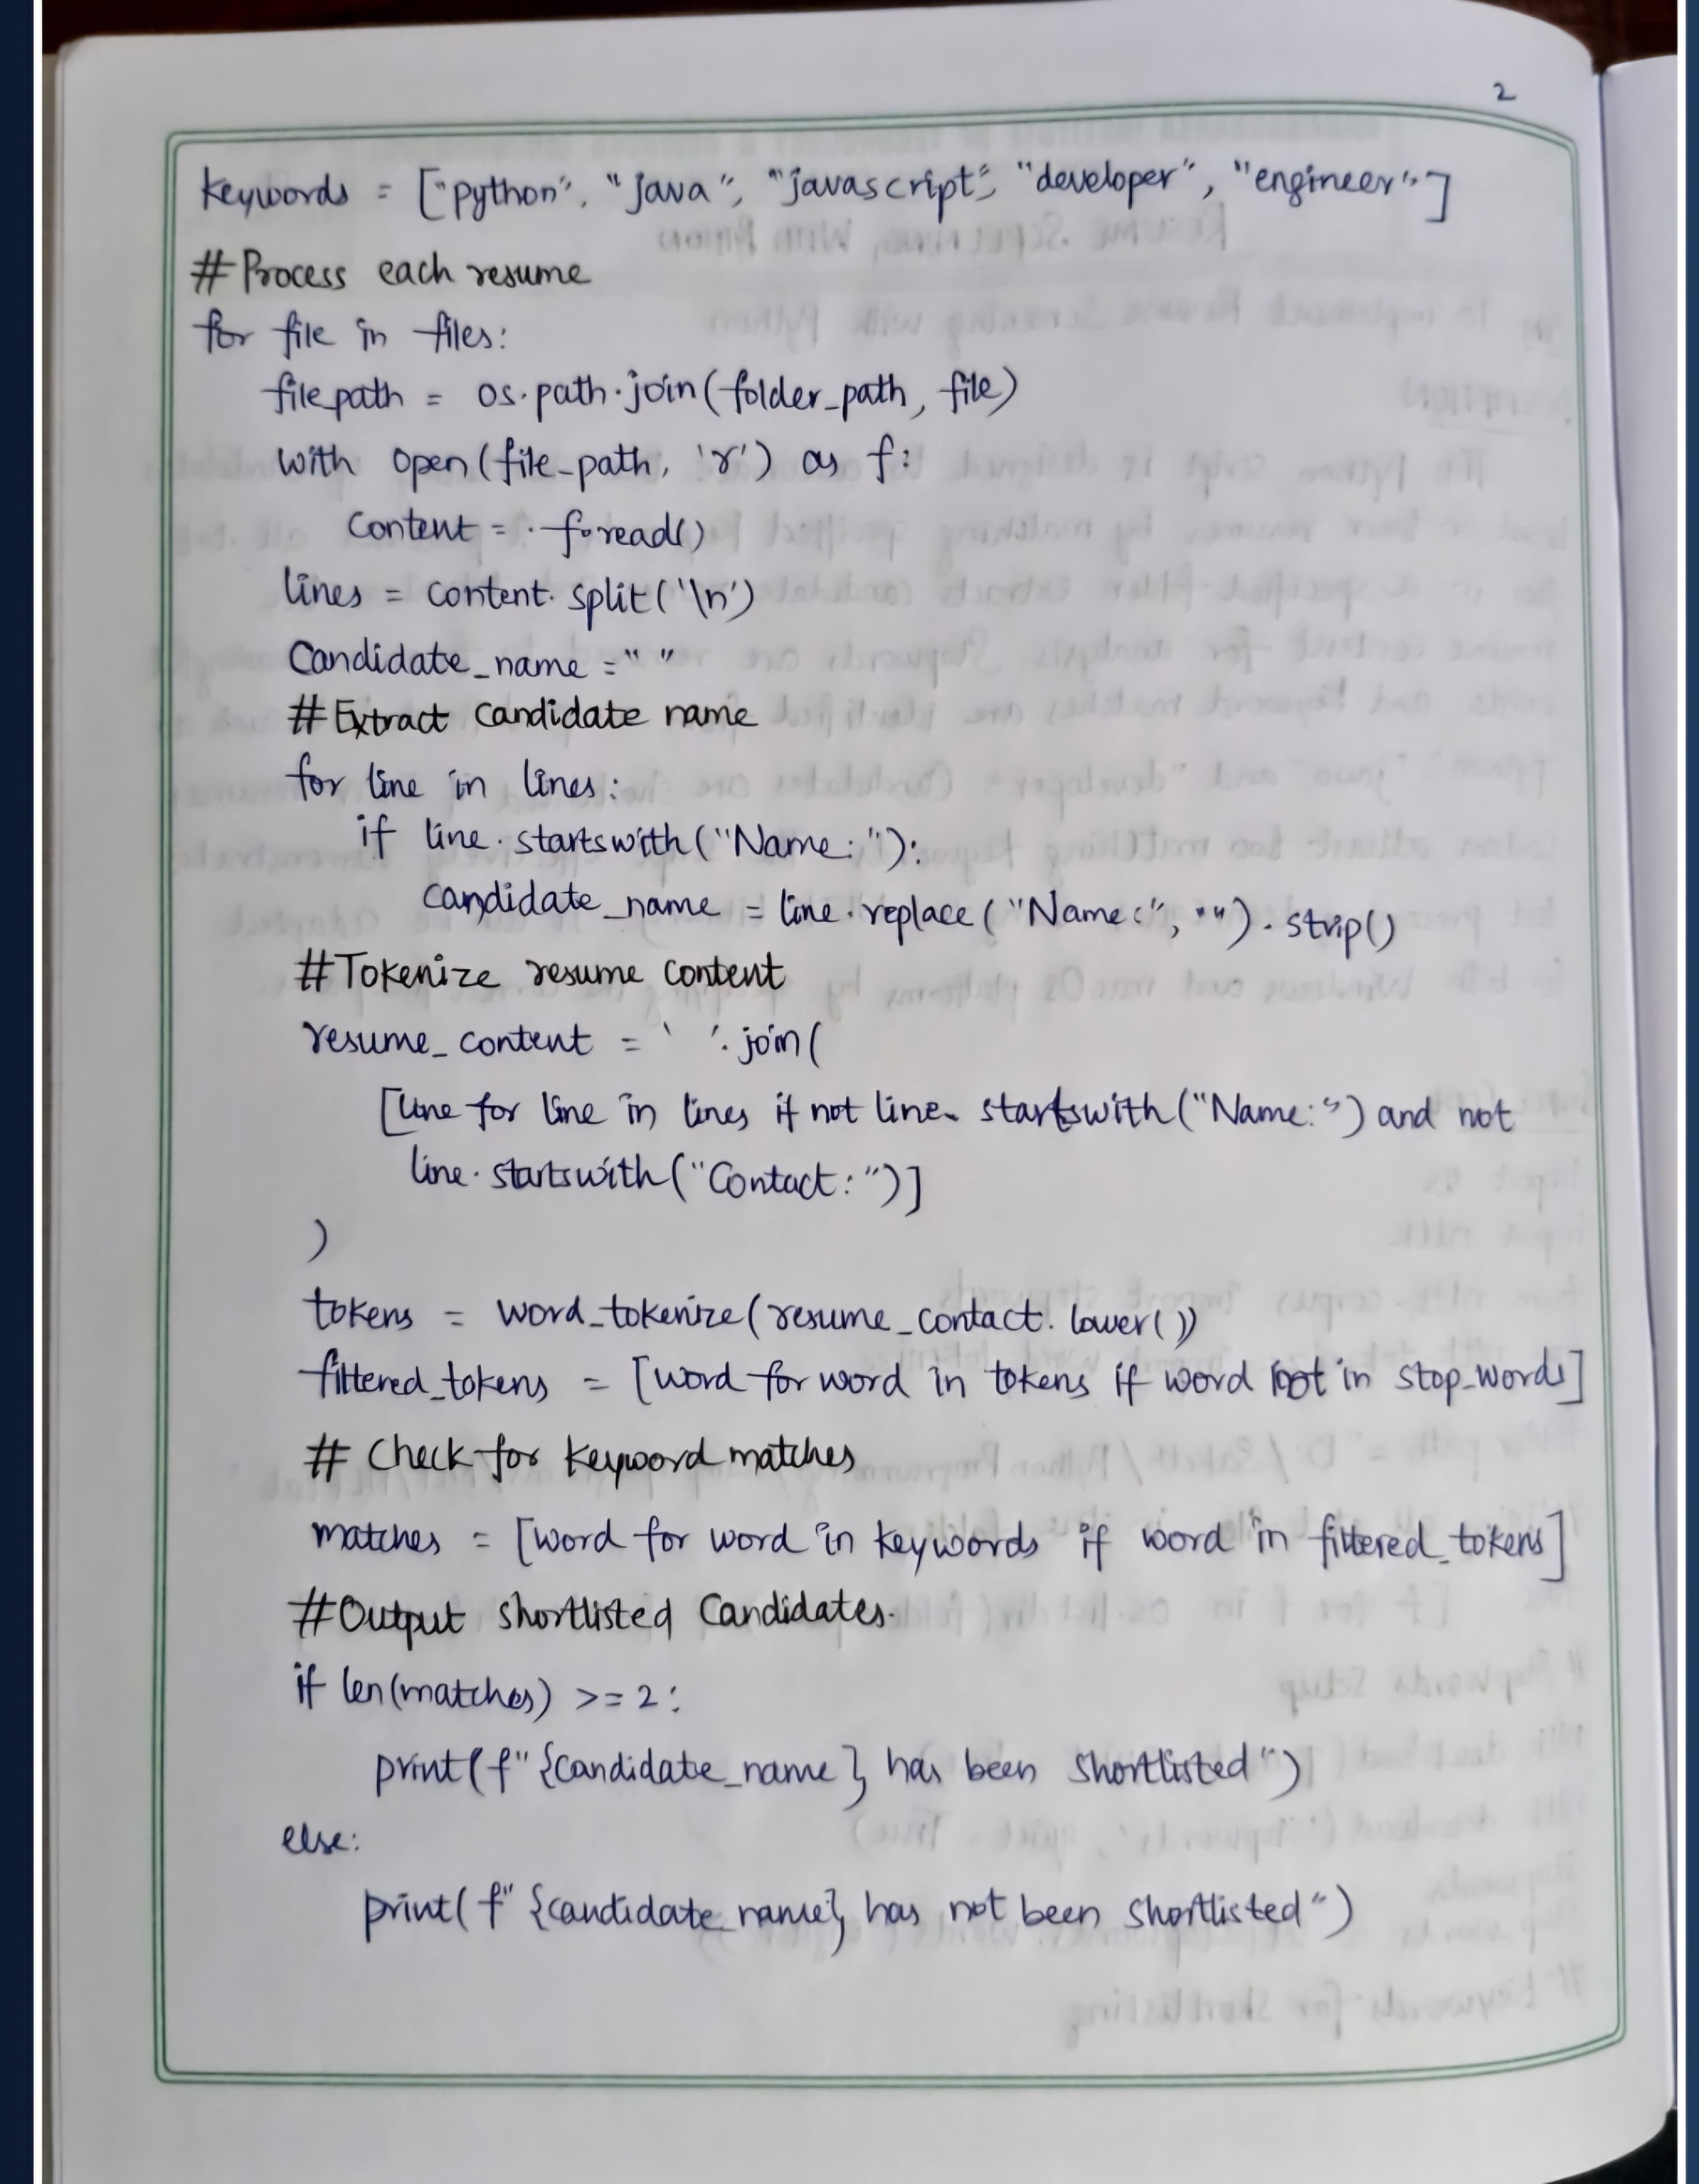 2
keywords = ["python", "java", "javascript", "developer", "engineer"]
#Process each resume
for file in files:
filepath = os.path.join(folder_path, file)
with open(file_path, 'r') as f:
content = f.read()
lines = content.split('\n')
Candidate_name = " "
#Extract candidate name
for line in lines:
if line.startswith("Name:"):
candidate_name = line.replace("Name:", "").strip()
#Tokenize resume content
resume_content = ' '.join(
[line for line in lines if not line. startswith("Name:") and not
line.startswith("Contact:")]
)
tokens = word_tokenize(resume_contact.lower())
filtered_tokens = [word for word in tokens if word not in stop_words]
# Check for keyword matches
matches = [word for word in keywords if word in filtered_tokens]
#Output shortlisted Candidates.
if len(matches) >= 2:
print(f"{candidate_name} has been shortlisted")
else:
print(f"{candidate_name} has not been shortlisted")